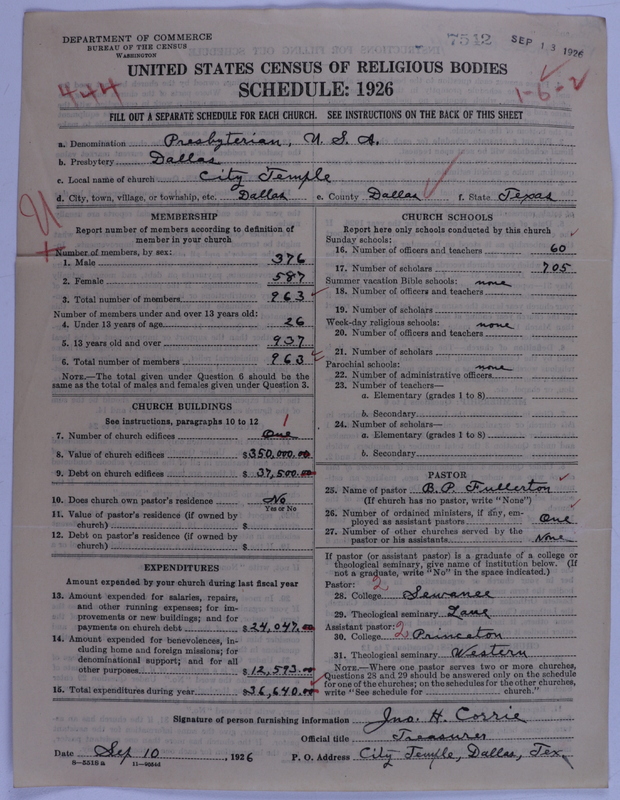 DEPARTMENT OF COMMERCE
BUREAU OF THE CENSUS
WASHINGTON
7542
SEP 13 1926
UNITED STATES CENSUS OF RELIGIOUS BODIES
SCHEDULE: 1926
444
1-6-2
FILL OUT A SEPARATE SCHEDULE FOR EACH CHURCH. SEE INSTRUCTIONS ON THE BACK OF THIS SHEET
a. Denomination Presbyterian, U. S. A.
b. Presbytery Dallas
c. Local name of church City Temple
d. City, town, village, or township, etc. Dallas e. County Dallas f. State Texas
MEMBERSHIP
Report number of members according to definition of
member in your church
Number of members, by sex:
1. Male 376
2. Female 587
3. Total number of members 963
Number of members under and over 13 years old:
4. Under 13 years of age 26
5. 13 years old and over 937
6. Total number of members 963
NOTE.—The total given under Question 6 should be
same as the total of males and females given under Question 3.
CHURCH BUILDINGS
See instructions, paragraphs 10 to 12
7. Number of church edifices One 1
8. Value of church edifices $350,000.00
9. Debt on church edifices $37,500.00
10. Does church own pastor's residence No
Yes or No
11. Value of pastor's residence (if owned by
church) $
12. Debt on pastor's residence (if owned by
church) $
EXPENDITURES
Amount expended by your church during last fiscal year
13. Amount expended for salaries, repairs,
and other running expenses; for im-
provements or new buildings; and for
payments on church debt $24,047.00
14. Amount expended for benevolences, in-
cluding home and foreign missions; for
denominational support; and for all
other purposes $12,593.00
15. Total expenditures during year $36,640.00
CHURCH SCHOOLS
Report here only schools conducted by this church
Sunday schools:
16. Number of officers and teachers 60
17. Number of scholars 705
Summer vacation Bible schools: none
18. Number of officers and teachers
19. Number of scholars
Week-day religious schools: none
20. Number of officers and teachers
21. Number of scholars
Parochial schools: none
22. Number of administrative officers
23. Number of teachers—
a. Elementary (grades 1 to 8)
b. Secondary
24. Number of scholars—
a. Elementary (grades 1 to 8)
b. Secondary
PASTOR
25. Name of pastor B. P. Fullerton
(If church has no pastor, write "None")
26. Number of ordained ministers, if any, em-
ployed as assistant pastors One
27. Number of other churches served by the
pastor or his assistants None
If pastor (or assistant pastor) is a graduate of a college or
theological seminary, give name of institution below. (If
not a graduate, write "No" in the space indicated.)
Pastor: 2
28. College Sewanee
29. Theological seminary Lane
Assistant pastor:
30. College 2 Princeton
31. Theological seminary Western
NOTE.—Where one pastor serves two or more churches,
Questions 28 and 29 should be answered only on the schedule
for one of the churches; on the schedules for the other churches,
write "See schedule for church."
Signature of person furnishing information Jno. H. Corrie
Official title Treasurer
Date Sep 10, 1926 P. O. Address City Temple, Dallas, Tex.
8-5518 a